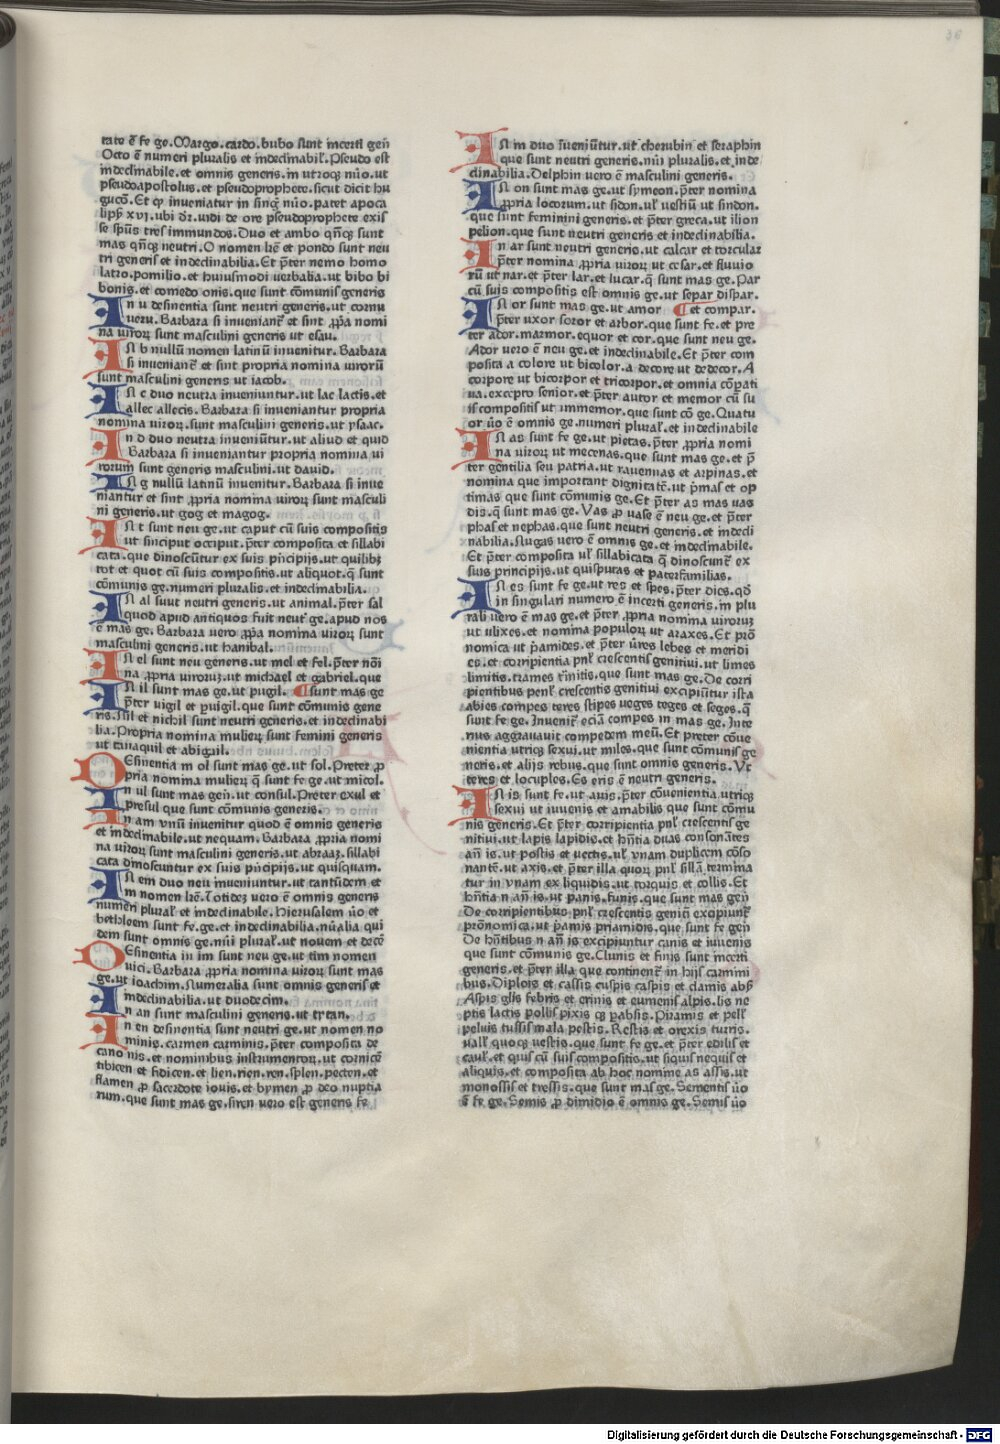 tate ē fe ge. Margo. cardo. bubo sunt incerti gen̄
Octo ē numeri pluralis et indeclinabił. Pseudo est
indeclinabile. et omnis generis. in utroqꝫ nūo. ut
pseudoapostolus. et pseudopropheta. sicut dicit hu
gucō. Et ꝙ inueniatur in singľ nūo. patet apoca
lipš xvj. ubi dr̄. uidi de ore pseudoprophete exis
se spūs tres immundos. Duo et ambo qn̄qꝫ sunt
mas qn̄qꝫ neutri. O nomen lr̄e et pondo sunt neu
tri generis et indeclinabilia. Et p̄ter nemo homo
latro. pomilio. et huiusmodi uerbalia. ut bibo bi
bonis. et comedo onis. que sunt cōmunis generis
In u desinentia sunt neutri generis. ut cornu
ueru. Barbara si inueniant᷑ et sint ꝓpͥa nomi
na uiroꝝ sunt masculini generis ut esau.
IN b nullū nomen latinū inuenitur. Barbara
si inueniant᷑ et sint propria nomina uirorū
sunt masculini generis ut iacob.
IN c duo neutra inueniuntur. ut lac lactis. et
allec allecis. Barbara si inueniantur propria
nomina uiroꝝ. sunt masculini generis. ut ysaac.
In d duo neutra inueniūtur. ut aliud et quid
Barbara si inueniantur propria nomina ui
rorum sunt generis masculini. ut dauid.
IN g nullū latinū inuenitur. Barbara si inue
niantur et sint ꝓpria nomina uiroꝝ sunt masculi
ni generis. ut gog et magog.
IN t sunt neu ge. ut caput cū suis compositis
ut sinciput occiput. p̄ter composita et sillabi
cata. que dinoscūtur ex suis pͥncipijs. ut quilibꝫ
tot et quot cū suis compositis. ut aliquot. q̄ sunt
cōmunis ge. numeri pluralis. et indeclinabilia.
IN al suut neutri generis. ut animal. p̄ter sal
quod apud antiquos fuit neut᷑ ge. apud nos
ē mas ge. Barbara uero ꝓpͥa nomina uiroꝝ sunt
masculini generis. ut hanibal.
IN el sunt neu generis. ut mel et fel. p̄ter nōi
na ꝓpria uiroruꝫ. ut michael et gabriel. que
IN il sunt mas ge. ut pugil. ¶ sunt mas ge
p̄ter uigil et puigil. que sunt cōmunis gene
ris. Nil et nichil sunt neutri generis. et indeclinabi
lia. Propria nomina mulieꝝ sunt femini generis
ut tanaquil et abigail.
DEsinentia in ol sunt mas ge. ut sol. Preter ꝓ
pria nomina mulieꝝ q̄ sunt fe ge. ut micol.
In ul sunt mas gen̄. ut consul. Preter exul et
presul que sunt cōmunis generis.
In am vnū inuenitur quod ē omnis generis
et indeclinabile. ut nequam. Barbara ꝓpria nomi
na uiroꝝ sunt masculini generis. ut abraaꝫ. sillabi
cata dinoscuntur ex suis pͥncipijs. ut quisquam.
IN em duo neu inueniuntur. ut tantūdem et
m nomen lr̄e. Totideꝫ uero ē omnis generis
numeri plurał et indeclinabile. Hierusalem ūo et
bethleem sunt fe. ge. et indeclinabilia. nūalia qui
dem sunt omnis ge. nūi plurał. ut nouem et decē
DEsinentia in im sunt neu ge. ut tim nomen
uici. Barbara ꝓpria nomina uiroꝝ sunt mas
ge. ut ioachim. Numeralia sunt omnis generis et
indeclinabilia. ut duodecim.
In an sunt masculini generis. ut tytan.
In en desinentia sunt neutri ge. ut nomen no
minis. carmen carminis. p̄ter composita de
cano nis. et nominibus instrumentoꝝ. ut cornicē
tibicen et fidicen. et lien. rien. ren. splen. pecten. et
flamen ꝓ sacerdote iouis. et hymen ꝓ deo nuptia
rum. que sunt mas ge. siren uero est generis fe
IN in duo īueniūtur. ut cherubin et seraphin
que sunt neutri generis. nūi pluralis. et inde
clinabilia. Delphin uero ē masculini generis.
IN on sunt mas ge. ut symeon. p̄ter nomina
ꝓpria locorum. ut sidon. uł uestiū ut sindon.
que sunt feminini generis. et p̄ter greca. ut ilion
pelion. que sunt neutri generis et indeclinabilia.
In ar sunt neutri generis. ut calcar et torcular
p̄ter nomina ꝓpria uiroꝝ ut cesar. et fluuio
rū ut nar. et p̄ter lar. et lucar. q̄ sunt mas ge. Par
cū suis compositis est omnis ge. ut separ dispar.
IN or sunt mas ge. ut amor ¶ et compar.
p̄ter uxor soror et arbor. que sunt fe. et pre
ter ador. marmor. equor et cor. que sunt neu ge.
Ador uero ē neu ge. et indeclinabile. Et p̄ter com
posita a colore ut bicolor. a decore ut dedecor. A
corpore ut bicorpor et tricorpor. et omnia cōpati
ua. excepto senior. et p̄ter autor et memor cū su
is compositis ut immemor. que sunt cō ge. Quatu
or ūo ē omnis ge. numeri plurał. et indeclinabile
IN as sunt fe ge. ut pietas. p̄ter ꝓpria nomi
na uiroꝝ ut mecenas. que sunt mas ge. et p̄
ter gentilia seu patria. ut rauennas et arpinas. et
nomina que important dignitatē. ut pͥmas et op
timas que sunt cōmunis ge. Et p̄ter as mas uas
dis. q̄ sunt mas ge. Vas ꝓ uase ē neu ge. et p̄ter
phas et nephas. que sunt neutri generis. et indecli
nabilia. Nugas uero ē omnis ge. et indeclinabile.
Et p̄ter composita uł sillabicata q̄ dinoscunt᷑ ex
suis principijs. ut quispuras et paterfamilias.
IN es sunt fe ge. ut res et spes. p̄ter dies. qd̄
in singulari numero ē incerti generis. in plu
rali uero ē mas ge. et p̄ter ꝓpria nomina uiroruꝫ
ut ulixes. et nomina populoꝝ ut araxes. Et prō
nomica ut pͥamides. et p̄ter ūres lebes et meridi
es. et corripientia pnł crescentis genitiui. ut limes
limitis. trames tͥmitis. que sunt mas ge. De corri
pientibus penł crescentis genitiui excipiūtur ista
abies compes teres stipes ueges teges et seges. q̄
sunt fe ge. Inuenit᷑ eciā compes in mas ge. Inte
rius aggrauauit compedem meū. Et preter cōue
nientia utriqꝫ sexui. ut miles. que sunt cōmunis ge
neris. et alijs rebus. que sunt omnis generis. Vt
teres et locuples. Es eris ē neutri generis.
IN is sunt fe. ut auis. p̄ter cōuenientia utriqꝫ
sexui ut iuuenis et amabilis que sunt cōmu
nis generis. Et p̄ter corripientia pnł crescentis ge
nitiui. ut lapis lapidis. et hn̄tia duas consonātes
an̄ is. ut postis et uectis. uł vnam duplicem cōso
nantē. ut axis. et p̄ter illa quoꝝ pnł sillā termina
tur in vnam ex liquidis. ut torquis et collis. Et
hn̄tia n an̄ is. ut panis. funis. que sunt mas gen̄
De corripientibus pnł crescentis genitī excipiunt᷑
prōnomica. ut pͥamis priamidis. que sunt fe gen̄
De hn̄tibus n an̄ is excipiuntur canis et iuuenis
que sunt cōmunis ge. Clunis et finis sunt incerti
generis. et p̄ter illa que continent᷑ in hijs carmini
bus. Diplois et cassis cuspis caspis et clamis absꝫ
Aspis glis febris et crinis et eumenis alpis. lis ne
ptis lactis pollis pixis cꝫ pabsis. Piramis et pell᷑
peluis tussis mala pestis. Restis et orexis turris.
uall᷑ quoqꝫ uestis. que sunt fe ge. et p̄ter edilis et
cauł. et quis cū suis compositis. ut siquis nequis et
aliquis. et composita ab hoc nomine as assis. ut
monossis et tressis. que sunt mas ge. Sementis ūo
ē fe ge. Semis ꝓ dimidio ē omnis ge. Semis ūo
Digitalisierung gefördert durch die Deutsche Forschungsgemeinschaft - DFG